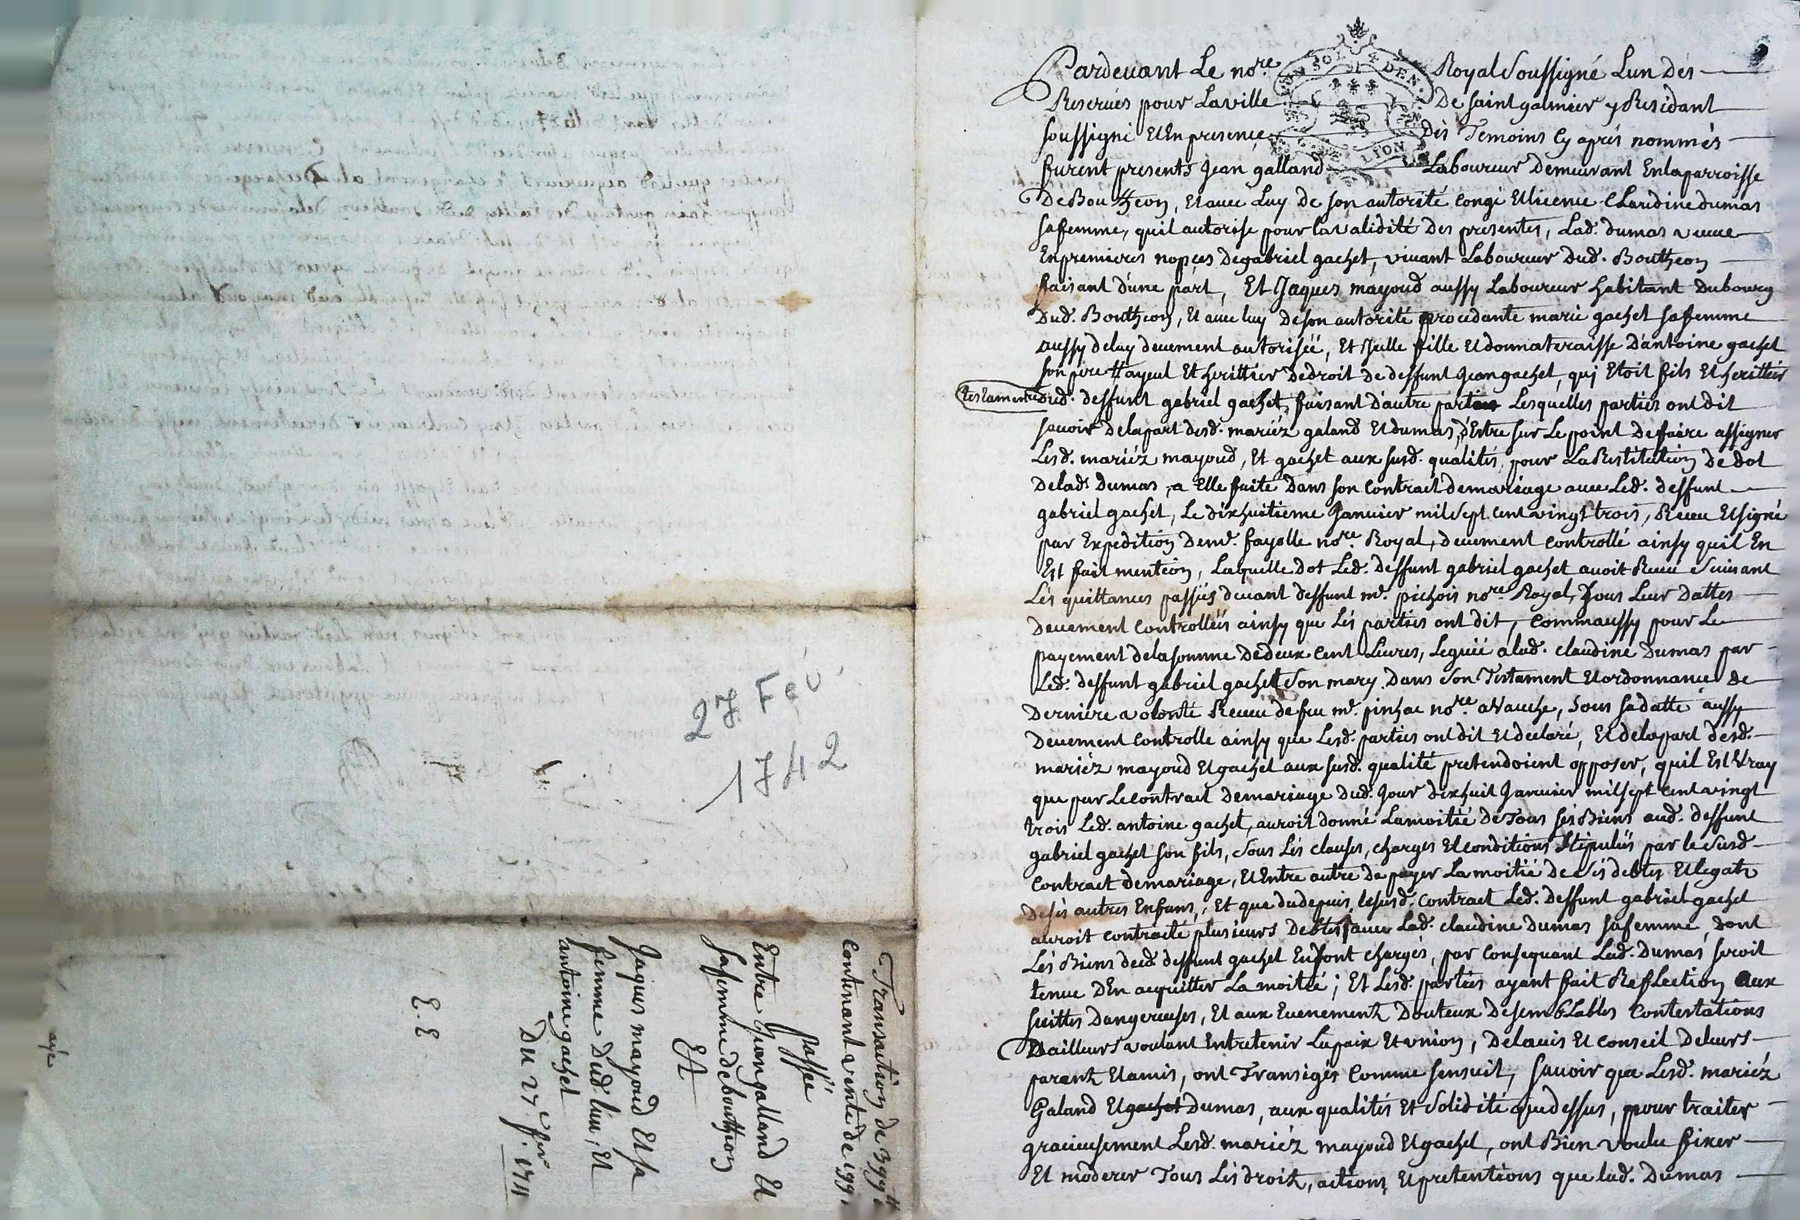 27 Fév
1742
Transaction de 399 lt
Contenant vente de 199
passée
Entre Jean galland Et
Sa femme de bouthéon
Et
Jaques mayoud Et sa
femme Dud. lieu, Et
antoine gachet
Du 27e fer
E. E
UN SOL 4 DEN.
LION
Pardevant Le nore Royal Soussigné Lun Des
Reservés pour La ville De Saint galmier y Residant
soussigné Et En presence Dés Temoins Cy aprés nommés
furent presents Jean galland Laboureur Demeurant En la parroisse
De Boutheon, Et avec Luy de son autorité congé Et licence Claudine dumas
sa femme, quil autorise pour la validité Des presentes, Lad. dumas veuve
En premieres nopces De gabriel gachet, vivant Laboureur Dud. Boutheon
faisant d'une part, Et Jaques mayoud aussy Laboureur habitant Du bourg
Dud. Boutheon, Et avec luy De son autorité procedante marie gachet sa femme
aussy de luy deuement autorisée, Et Jcelle fille Et donnateraisse D'antoine gachet
son pere ayeul Et herittier De droit De deffunt Jean gachet, qui Etoit fils Et heritier
testamentre Dud. deffunt gabriel gachet, faisant d'autre part Lesquelles parties ont dit
savoir De la part desd. mariéz galand Et dumas, d'Estre sur Le point De faire assigner
Lesd. mariéz mayoud, Et gachet aux susd. qualités, pour La Restitution De dot
De lad. dumas, a Elle faite Dans son contract de mariage avec Led. deffunt
gabriel gachet, Le dixhuitieme Janvier mil sept cent vingt trois, Receu Et signé
par Expedition De me. fayolle nore Royal, deuement controllé ainsy quil En
Est fait mention, Laquelle dot Led. deffunt gabriel gachet avoit Receu Suivant
Lés quittances passées devant deffunt me. pichois nore Royal, Sous Leur Dattes
Deuement Controllées ainsy que Lés parties ont dit, comm aussy pour Le
payement de la somme De deux cent Livres, Leguée a lad. claudine Dumas par
Led. deffunt gabriel gachet Son mary Dans Son Testament Et ordonnance de
Derniere volonté Receu de feu me. pinhac nore a Vauche, Sous sa datte aussy
Deuement Controlle ainsy que Lesd. parties ont dit Et declaré, Et de la part desd.
mariéz mayoud Et gachet aux susd. qualité pretendoient opposer, quil Est Vray
que par Le contract De mariage Dud. Jour dixhuit Janvier mil sept cent vingt
trois Led. antoine gachet, auroit donné La moitié de Tous sés Biens aud. deffunt
gabriel gachet son fils, Sous Lés clauses, charges Et conditions Stipulées par le susd.
Contract de mariage, Et Entre autre De payer La moitié de sés debtes Et legatz
De sés autres Enfans, Et que du depuis, lesusd. contract Led. Deffunt gabriel gachet
auroit contracté plusieurs Debtes avec Lad. claudine Dumas sa femme, dont
Lés Biens dud. deffunt gachet En sont chargés, par consequant Lad. Dumas seroit
tenue D'En acquitter La moitié; Et Lesd. parties ayant fait Reflection aux
suittes Dangereuses, Et aux Evenementz Douteux De semblables Contestations
D'ailleurs voulant Entretenir La paix Et union, De l'avis Et conseil De leurs
parantz Et amis, ont Transigés Comme sensuit, Savoir que Lesd. mariéz
Galand Et gachet Dumas, aux qualités Et Solidité que dessus, pour traiter
gracieusement Lesd. mariéz mayoud Et gachet, ont Bien voulu fixer
Et moderer Tous Lés droitz, actions Et pretentions que lad. Dumas